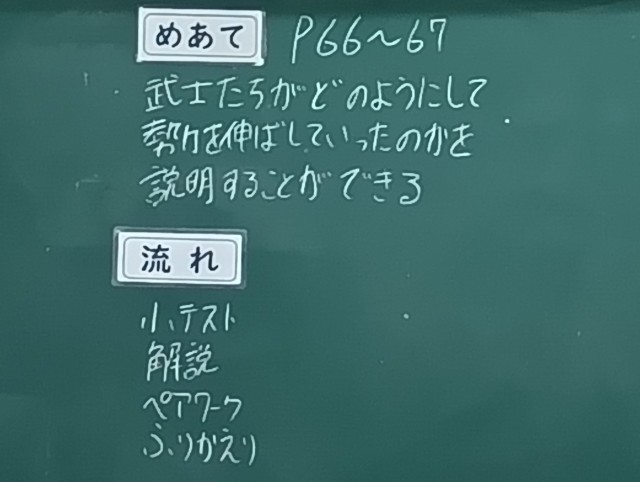 めあて P66～67
武士たちがどのようにして
勢力を伸ばしていったのかを
説明することができる
流れ
小テスト
解説
ペアワーク
ふりかえり